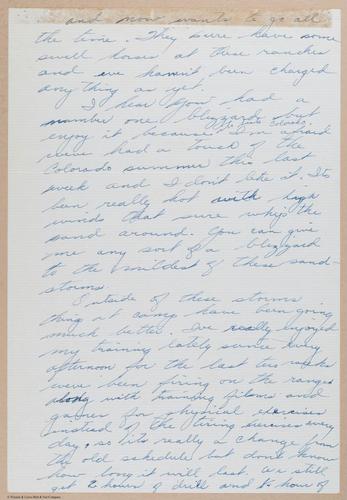 and now wants to go all
the time. They sure have some
swell horses at these ranches
and we haven't been charged
anything as yet.
I hear you had a
number one blizzard but
enjoy it because I'm afraid
weve had a touch of the
Colorado summer this last
week and I don't like it. Its
been really hot with high
winds that sure whip the
sand around. You can give
me any sort of a blizzard
to the mildest of these sand-
storms.
Outside of these storms
things at camp have been going
much better. I've really enjoyed
my training lately since every
afternoon for the last two weeks
weve been firing on the range
along with training films and
games for physical exercises
instead of the tiring exercises every
day, so its really a change from
the old schedule but don't know
how long it will last. We still
get 2 hours of drill and ½ hour of